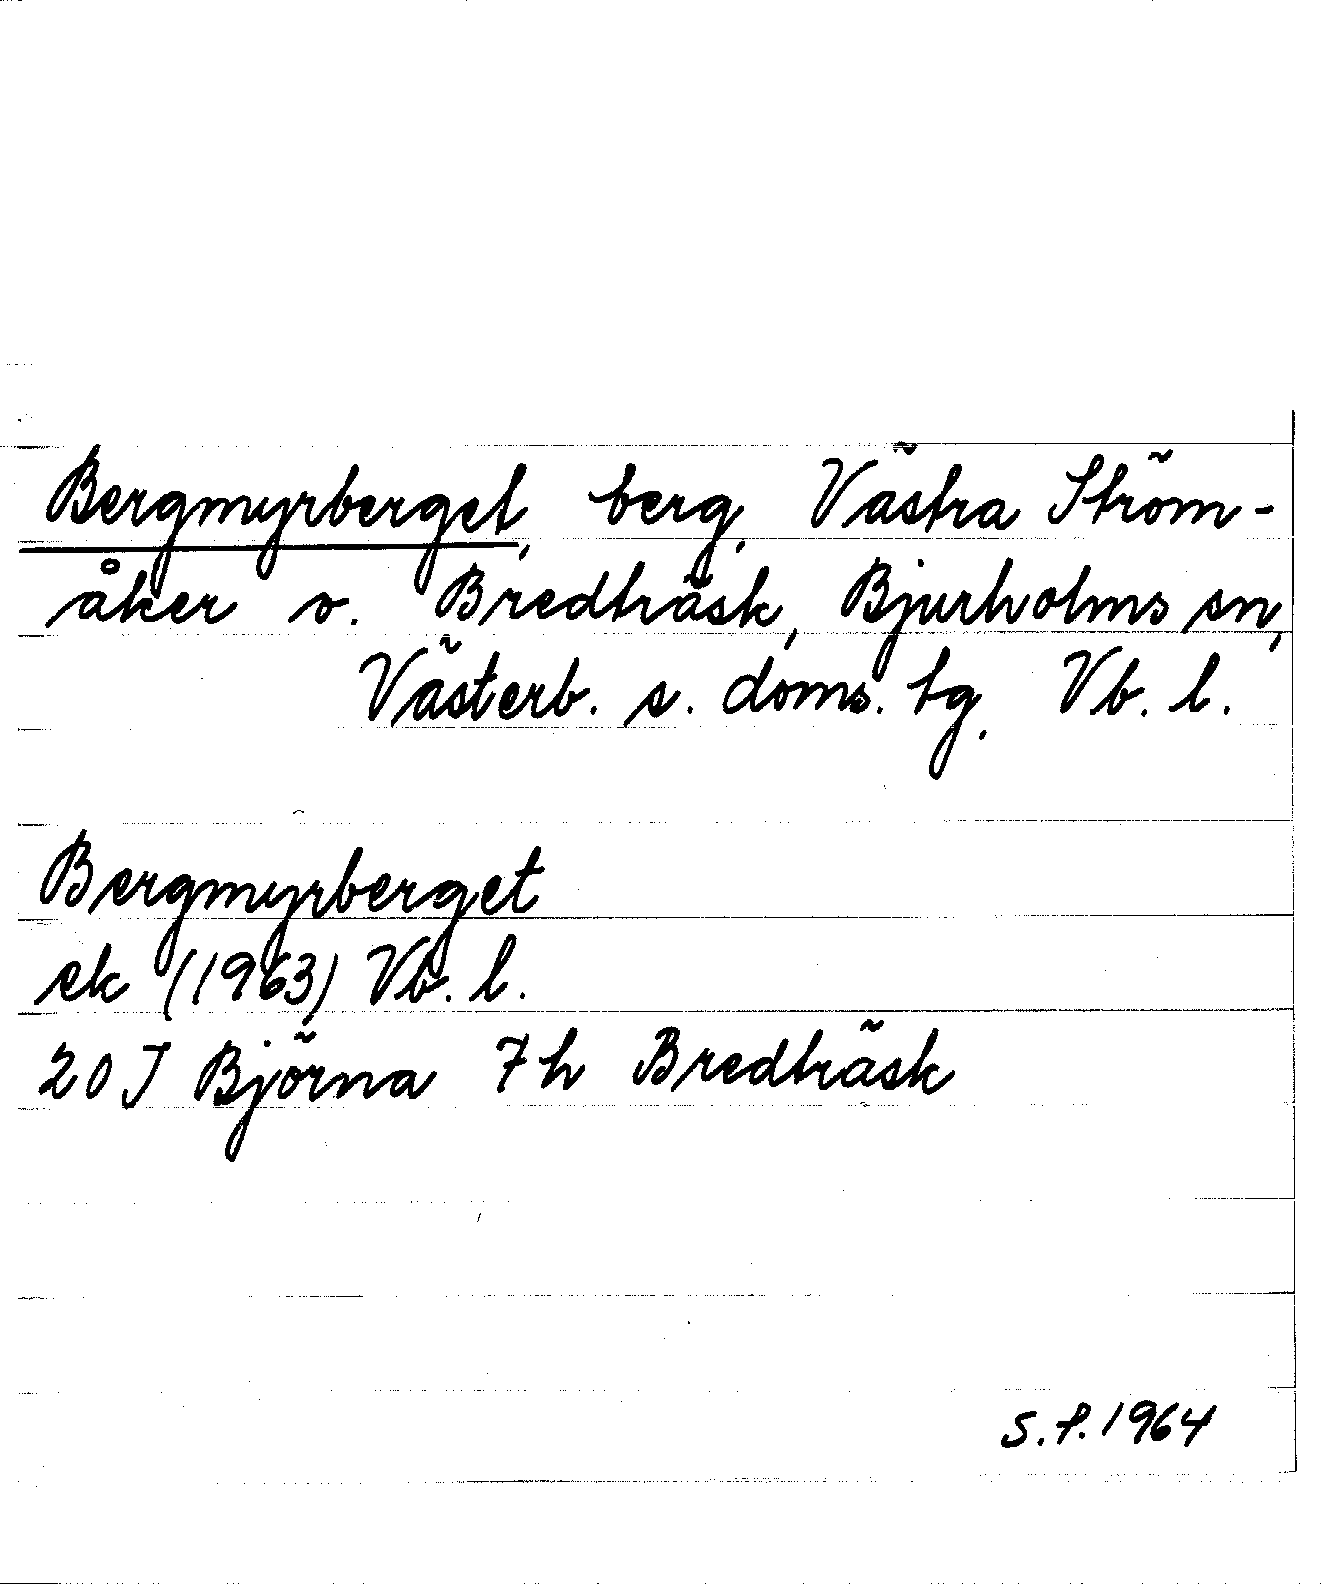 Bergmyrberget, berg, Västra Ström-
åker o. Bredträsk, Bjurholms sn,
Västerb. s. doms. tg. Vb. l.
Bergmyrberget
ek (1963) Vb. l.
20 J Björna 7 h Bredträsk
S.P. 1964